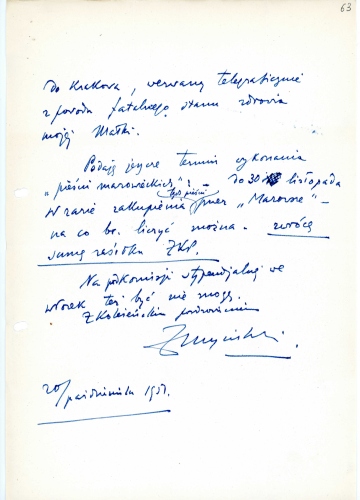 63
do Krakowa, wezwany telegraficznie
z powodu fatalnego stanu zdrowia
mojej Matki.
Podaję jeszcze termin wykonania
"pieśni mazowieckich": - do 30 listopada
W razie zakupienia tych pieśni przez "Mazowsze" -
na co bo. liczyć można - zwrócę
sumę zaliczki ZKP.
Na podkomisji stypendialnej we
wtorek też być nie mogę.
Z koleżeńskim pozdrowieniem
20/październik 1951.